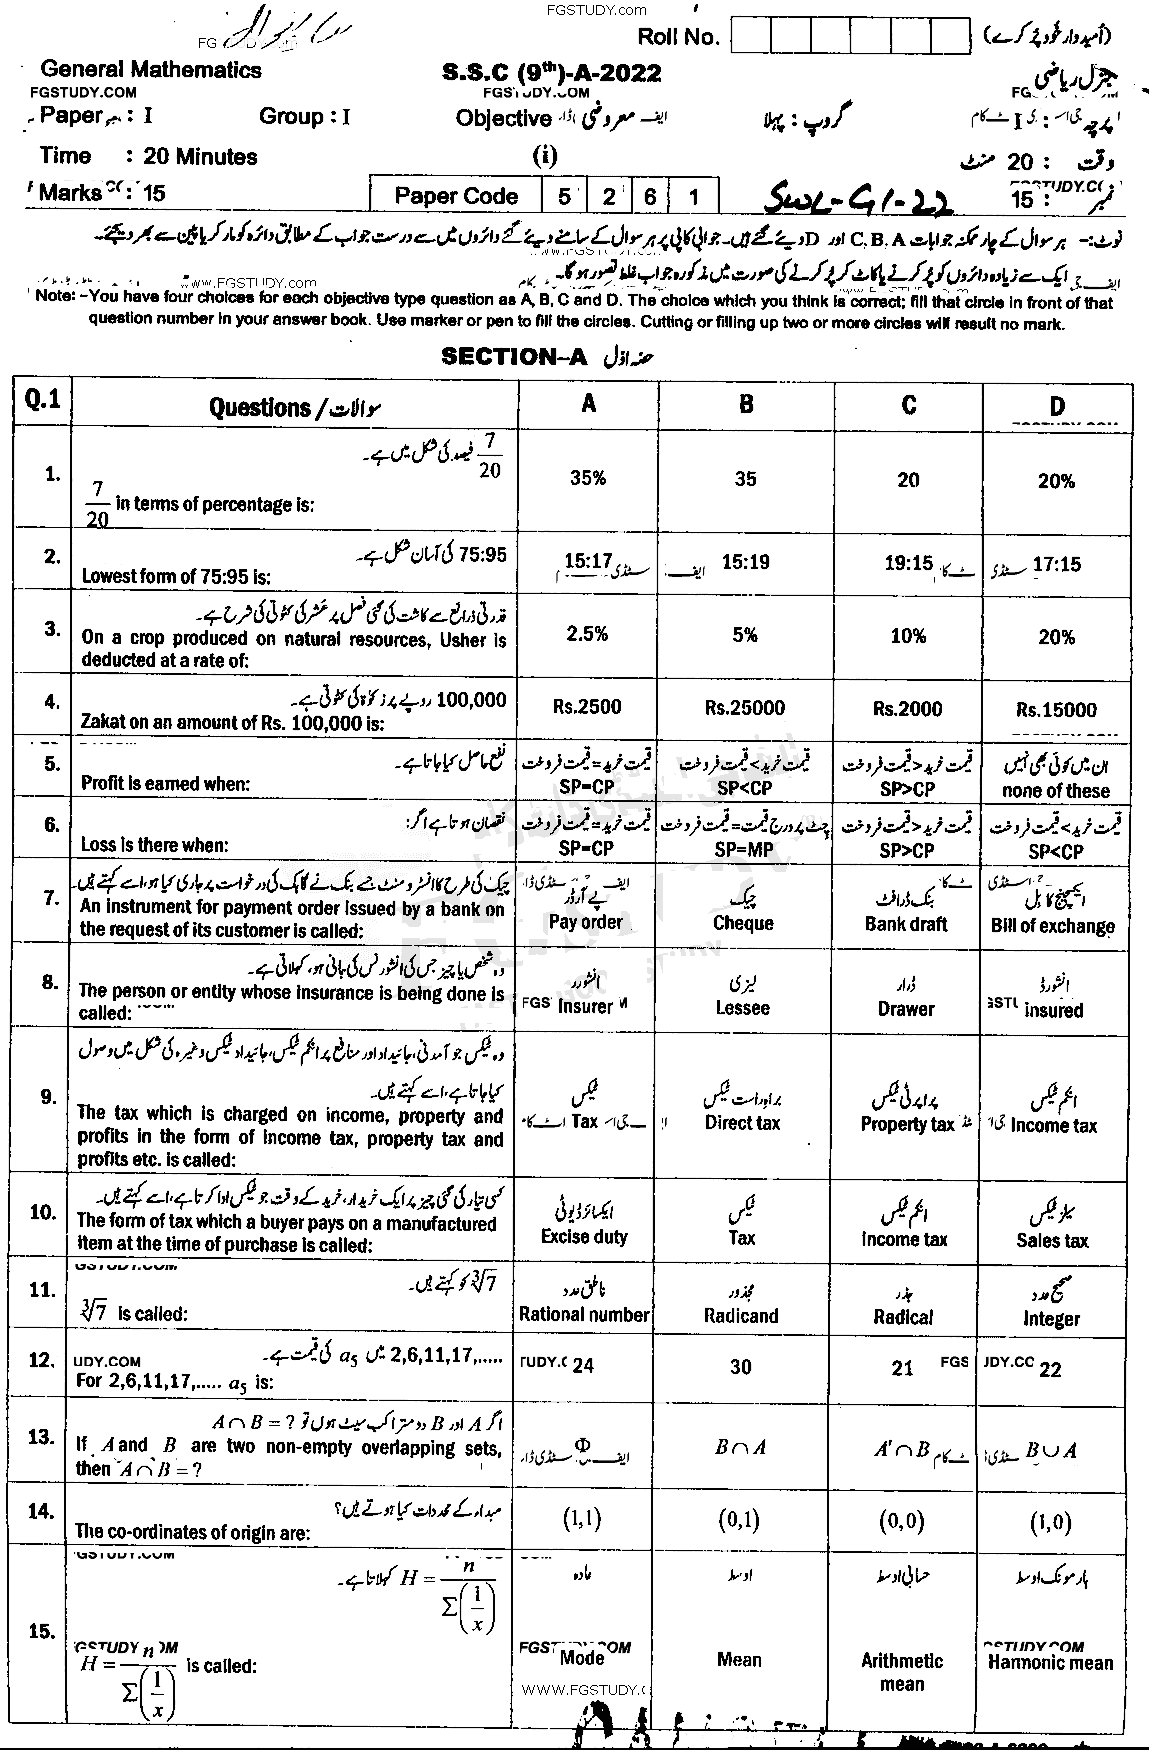 FGSTUDY.com
Roll No. (امیدوار خود پُر کرے)
General Mathematics S.S.C (9th)-A-2022 جنرل ریاضی
FGSTUDY.COM FGSTUDY.COM
Paper : I Group : I Objective معروضی گروپ : پہلا پرچہ : I
Time : 20 Minutes (i) وقت : 20 منٹ
Marks : 15 Paper Code 5 2 6 1 SWL-G1-22 نمبر : 15
نوٹ:- ہر سوال کے چار ممکنہ جوابات C, B, A اور D دیئے گئے ہیں۔ جوابی کاپی پر ہر سوال کے سامنے دیئے گئے دائروں میں سے درست جواب کے مطابق دائرہ کو مارکر یا پین سے بھر دیجئے۔
WWW.FGSTUDY.COM
ایک سے زیادہ دائروں کو پُر کرنے یا کاٹ کر پُر کرنے کی صورت میں مذکورہ جواب غلط تصور ہو گا۔
Note: -You have four choices for each objective type question as A, B, C and D. The choice which you think is correct; fill that circle in front of that
question number in your answer book. Use marker or pen to fill the circles. Cutting or filling up two or more circles will result no mark.
SECTION-A حصہ اوّل
Q.1 Questions / سوالات A B C D
1. 7/20 فیصد کی شکل میں ہے۔
7/20 in terms of percentage is: 35% 35 20 20%
2. 75:95 کی آسان شکل ہے۔
Lowest form of 75:95 is: 15:17 15:19 19:15 17:15
3. قدرتی ذرائع سے کاشت کی گئی فصل پر عشر کی کٹوتی کی شرح ہے۔
On a crop produced on natural resources, Usher is
deducted at a rate of: 2.5% 5% 10% 20%
4. 100,000 روپے پر زکوٰۃ کی کٹوتی ہے۔
Zakat on an amount of Rs. 100,000 is: Rs.2500 Rs.25000 Rs.2000 Rs.15000
5. نفع حاصل کیا جاتا ہے۔ قیمت خرید = قیمت فروخت قیمت خرید > قیمت فروخت قیمت خرید < قیمت فروخت ان میں کوئی بھی نہیں
Profit is earned when: SP=CP SP<CP SP>CP none of these
6. نقصان ہوتا ہے اگر: قیمت خرید = قیمت فروخت چٹ پر درج قیمت = قیمت فروخت قیمت خرید < قیمت فروخت قیمت خرید > قیمت فروخت
Loss is there when: SP=CP SP=MP SP>CP SP<CP
7. چیک کی طرح کا انسٹرومنٹ جسے بنک نے گاہک کی درخواست پر جاری کیا ہو، اسے کہتے ہیں۔ پے آرڈر چیک بنک ڈرافٹ ایکسچینج کا بل
An instrument for payment order issued by a bank on
the request of its customer is called: Pay order Cheque Bank draft Bill of exchange
8. وہ شخص یا چیز جس کی انشورنس کی جانی ہو، کہلاتی ہے۔ انشورر لیزی ڈرار انشورڈ
The person or entity whose insurance is being done is
called: Insurer Lessee Drawer insured
9. وہ ٹیکس جو آمدنی، جائیداد اور منافع پر انکم ٹیکس، جائیداد ٹیکس وغیرہ کی شکل میں وصول
کیا جاتا ہے، اسے کہتے ہیں۔ ٹیکس براہ راست ٹیکس پراپرٹی ٹیکس انکم ٹیکس
The tax which is charged on income, property and
profits in the form of income tax, property tax and
profits etc. is called: Tax Direct tax Property tax Income tax
10. کسی تیار کی گئی چیز پر ایک خریدار، خرید کے وقت جو ٹیکس ادا کرتا ہے، اسے کہتے ہیں۔ ایکسائز ڈیوٹی ٹیکس انکم ٹیکس سیلز ٹیکس
The form of tax which a buyer pays on a manufactured
item at the time of purchase is called: Excise duty Tax Income tax Sales tax
11. ∛7 کو کہتے ہیں۔ ناطق عدد مجذور جذر صحیح عدد
∛7 is called: Rational number Radicand Radical Integer
12. 2,6,11,17,..... میں a₅ کی قیمت ہے۔
For 2,6,11,17,..... a₅ is: 24 30 21 22
13. اگر A اور B دو متراکب سیٹ ہوں تو A∩B = ?
If A and B are two non-empty overlapping sets,
then A∩B = ? Φ B∩A A'∩B B∪A
14. مبداء کے محددات کیا ہوتے ہیں؟
The co-ordinates of origin are: (1,1) (0,1) (0,0) (1,0)
15. H = n/Σ(1/x) کہلاتا ہے۔ عادہ اوسط حسابی اوسط ہارمونک اوسط
H = n/Σ(1/x) is called: Mode Mean Arithmetic mean Harmonic mean
WWW.FGSTUDY.C